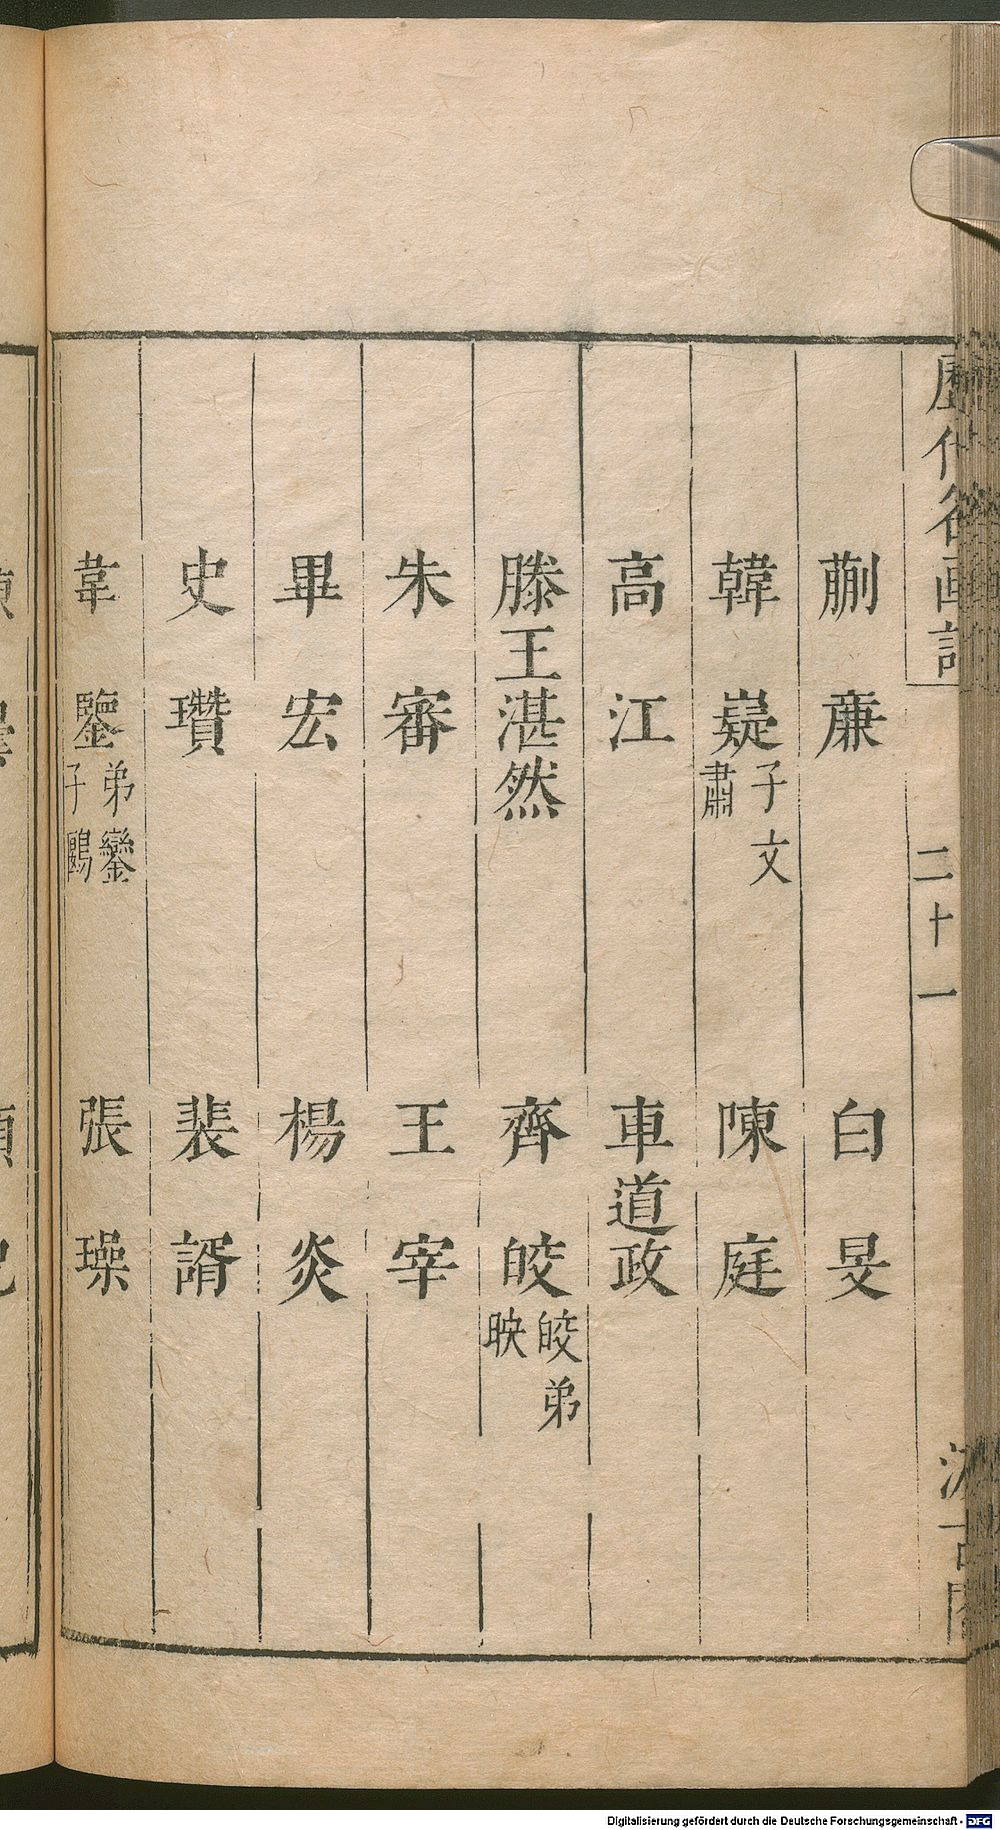 歷代名画記
二十一
汲古閣
蒯廉 白旻
韓嶷子文肅 陳庭
高江 車道政
滕王湛然 齊皎皎弟映
朱審 王宰
畢宏 楊炎
史瓚 裴諝
韋鑒弟鑾子鷗 張璪
Digitalisierung gefördert durch die Deutsche Forschungsgemeinschaft - DFG